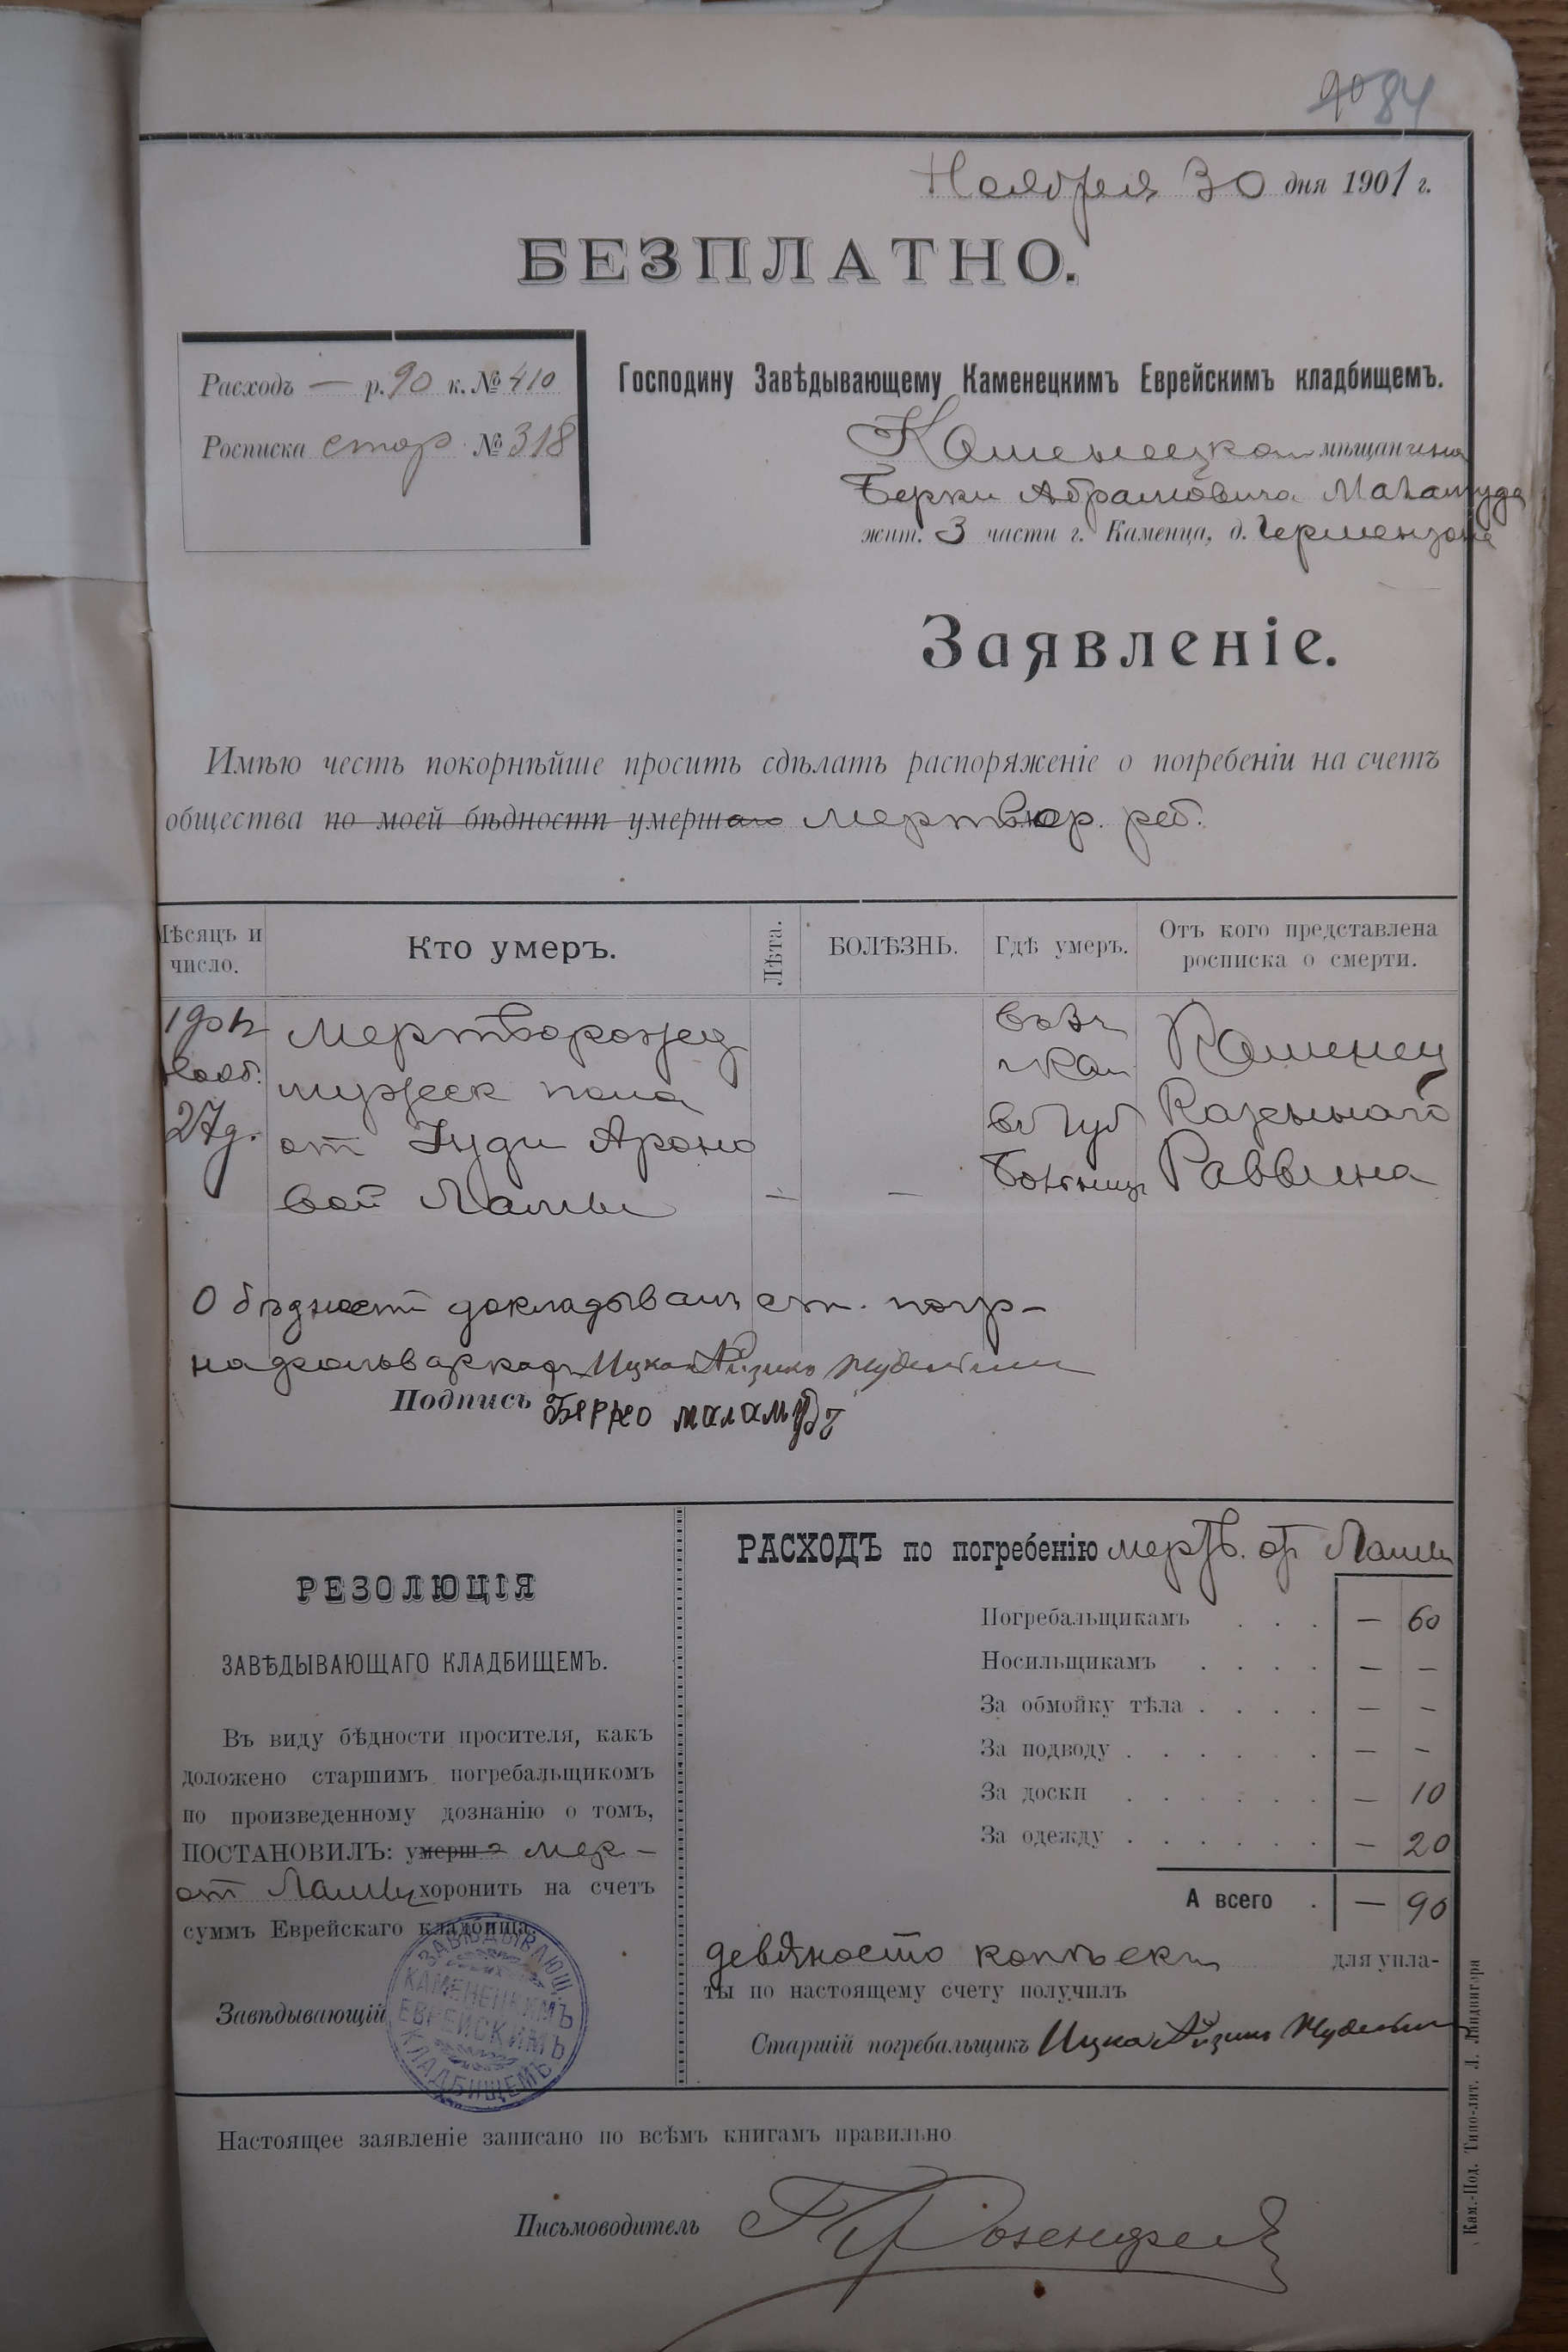 90 84
Ноября 30 дня 1901 г.
БЕЗПЛАТНО.
Расходъ — р. 90 к. № 410
Росписка стор № 318
Господину Завѣдывающему Каменецкимъ Еврейскимъ кладбищемъ.
Каменецкаго мѣщанина
Берки Абрамовича Маламуда
жит. 3 части г. Каменца, д. Гермензона
Заявленіе.
Имѣю честь покорнѣйше просить сдѣлать распоряженіе о погребеніи на счетъ
общества по моей бѣдности умершаго мертвор. реб.
Мѣсяцъ и число.
Кто умеръ.
Лѣта.
БОЛѢЗНЬ.
Гдѣ умеръ.
Отъ кого представлена росписка о смерти.
Нояб.
27 д.
Мертворожд
мужеск пола
от Гуди Ароно
вой Ламы
— —
въ Губ
Больниц
Каменец
Казеннаго
Раввина
О бѣдности докладываетъ ст. погр-
Ицко Айзикъ
Подпись Берко маламудъ
РЕЗОЛЮЦІЯ
ЗАВѢДЫВАЮЩАГО КЛАДБИЩЕМЪ.
Въ виду бѣдности просителя, какъ
доложено старшимъ погребальщикомъ
по произведенному дознанію о томъ,
ПОСТАНОВИЛЪ: умерш мер-
от Ламы хоронить на счетъ
суммъ Еврейскаго кладбища.
Завѣдывающій
ЗАВѢДЫВАЮЩ. КАМЕНЕЦКИМЪ ЕВРЕЙСКИМЪ КЛАДБИЩЕМЪ
РАСХОДЪ по погребенію мертв. от Ламы
Погребальщикамъ . . . — 60
Носильщикамъ . . . . — —
За обмойку тѣла . . . . — —
За подводу . . . . . . — —
За доски . . . . . . — 10
За одежду . . . . . . — 20
А всего . — 90
девяносто копѣекъ для упла-
ты по настоящему счету получилъ
Старшій погребальщикъ Ицко Айзикъ
Настоящее заявленіе записано по всѣмъ книгамъ правильно
Письмоводитель Розенфельд
Кам.-Под. Типо-лит. Л. Ландвигера